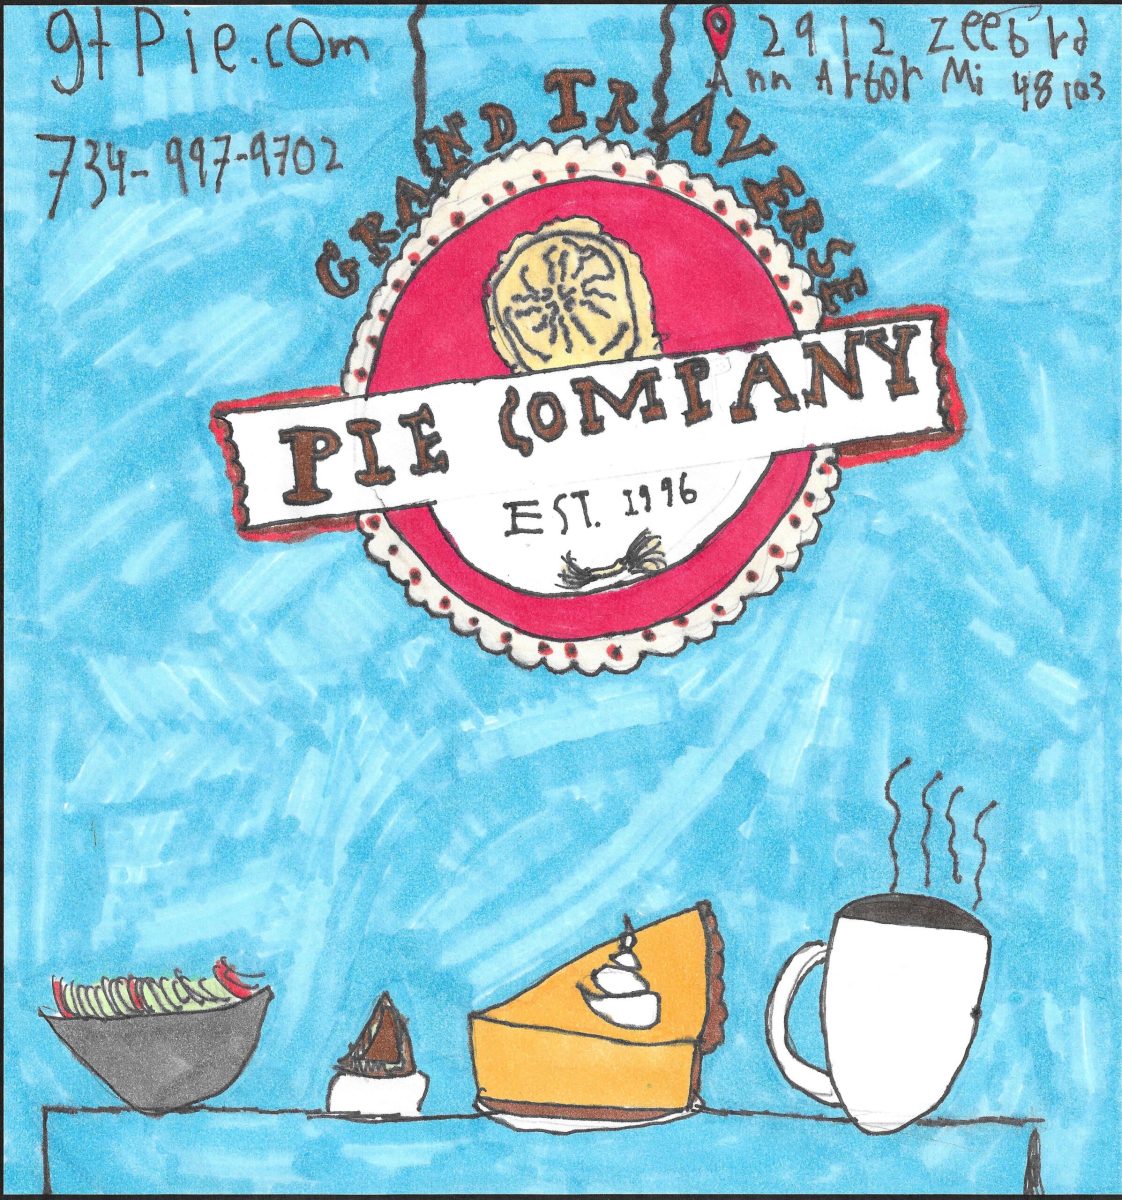 gtPie.com
2912 zeeb rd
Ann Arbor Mi 48103
734-997-9702
GRAND TRAVERSE
PIE COMPANY
EST. 1996